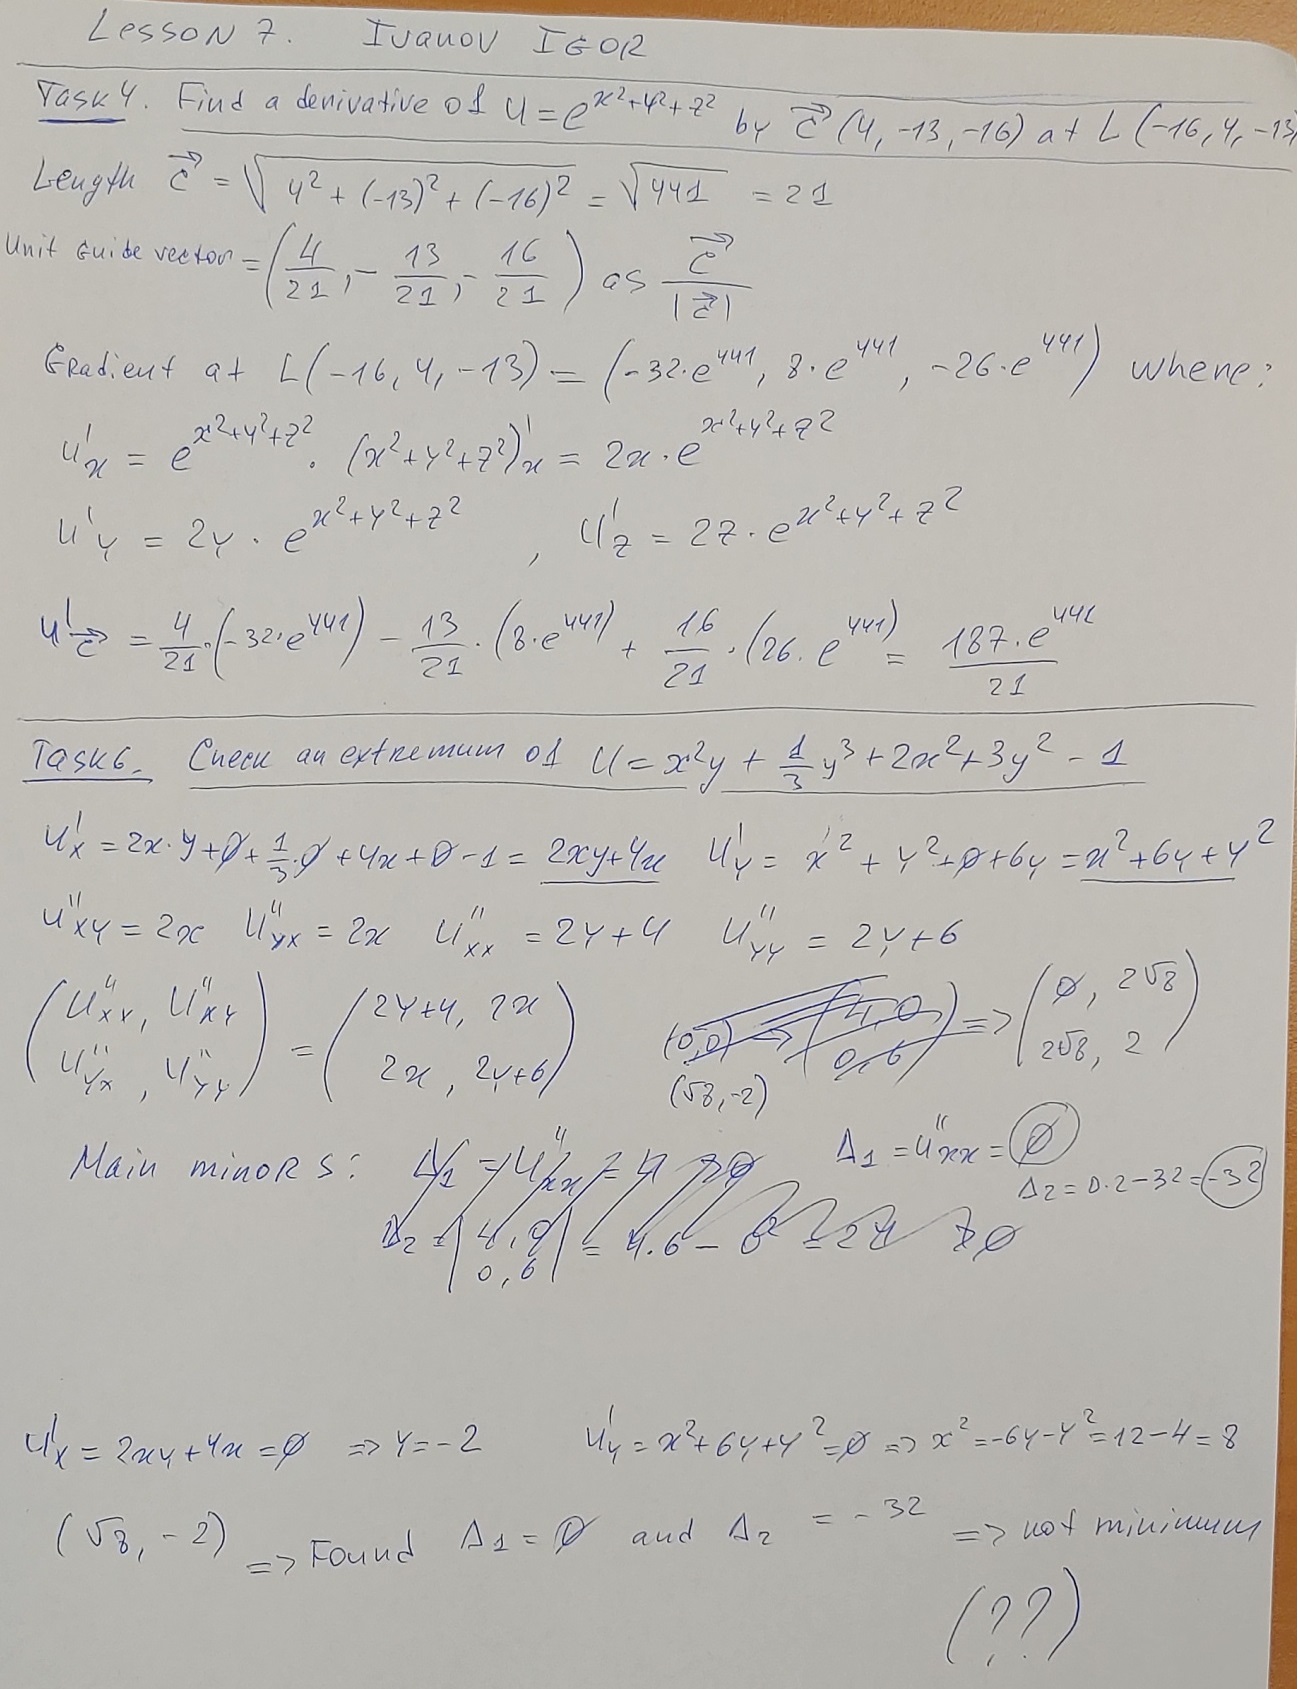 Lesson 7. Ivanov Igor
Task 4. Find a derivative of U = e^(x²+y²+z²) by c⃗ (4, -13, -16) at L (-16, 4, -13)
Length c⃗ = √(4² + (-13)² + (-16)²) = √441 = 21
Unit Guide vector = (4/21, - 13/21, - 16/21) as c⃗/|c⃗|
Gradient at L(-16, 4, -13) = (-32·e^441, 8·e^441, -26·e^441) where:
u'x = e^(x²+y²+z²) · (x²+y²+z²)'x = 2x·e^(x²+y²+z²)
u'y = 2y · e^(x²+y²+z²), u'z = 2z·e^(x²+y²+z²)
u'c⃗ = 4/21·(-32·e^441) - 13/21·(8·e^441) + 16/21·(26·e^441) = 187·e^441/21
Task 6. Check an extremum of U = x²y + 1/3 y³ + 2x² + 3y² - 1
u'x = 2x·y + 0 + 1/3·0 + 4x + 0 - 1 = 2xy+4x u'y = x² + y² + 0 + 6y = x²+6y+y²
u''xy = 2x u''yx = 2x u''xx = 2y+4 u''yy = 2y+6
(u''xx, u''xy) (2y+4, 2x) (0,0) => (4,0) => (0, 2√8)
(u''yx, u''yy) = (2x, 2y+6) (√8,-2) (0,6) (2√8, 2)
Main minors: Δ1 = u''xx = 4 > 0 Δ1 = u''xx = 0
Δ2 = |4,0| = 4·6 - 0 = 24 > 0 Δ2 = 0·2-32 = -32
|0,6|
u'x = 2xy+4x = 0 => y = -2 u'y = x²+6y+y² = 0 => x² = -6y-y² = 12-4 = 8
(√8, -2) => Found Δ1 = 0 and Δ2 = -32 => not minimum
(??)